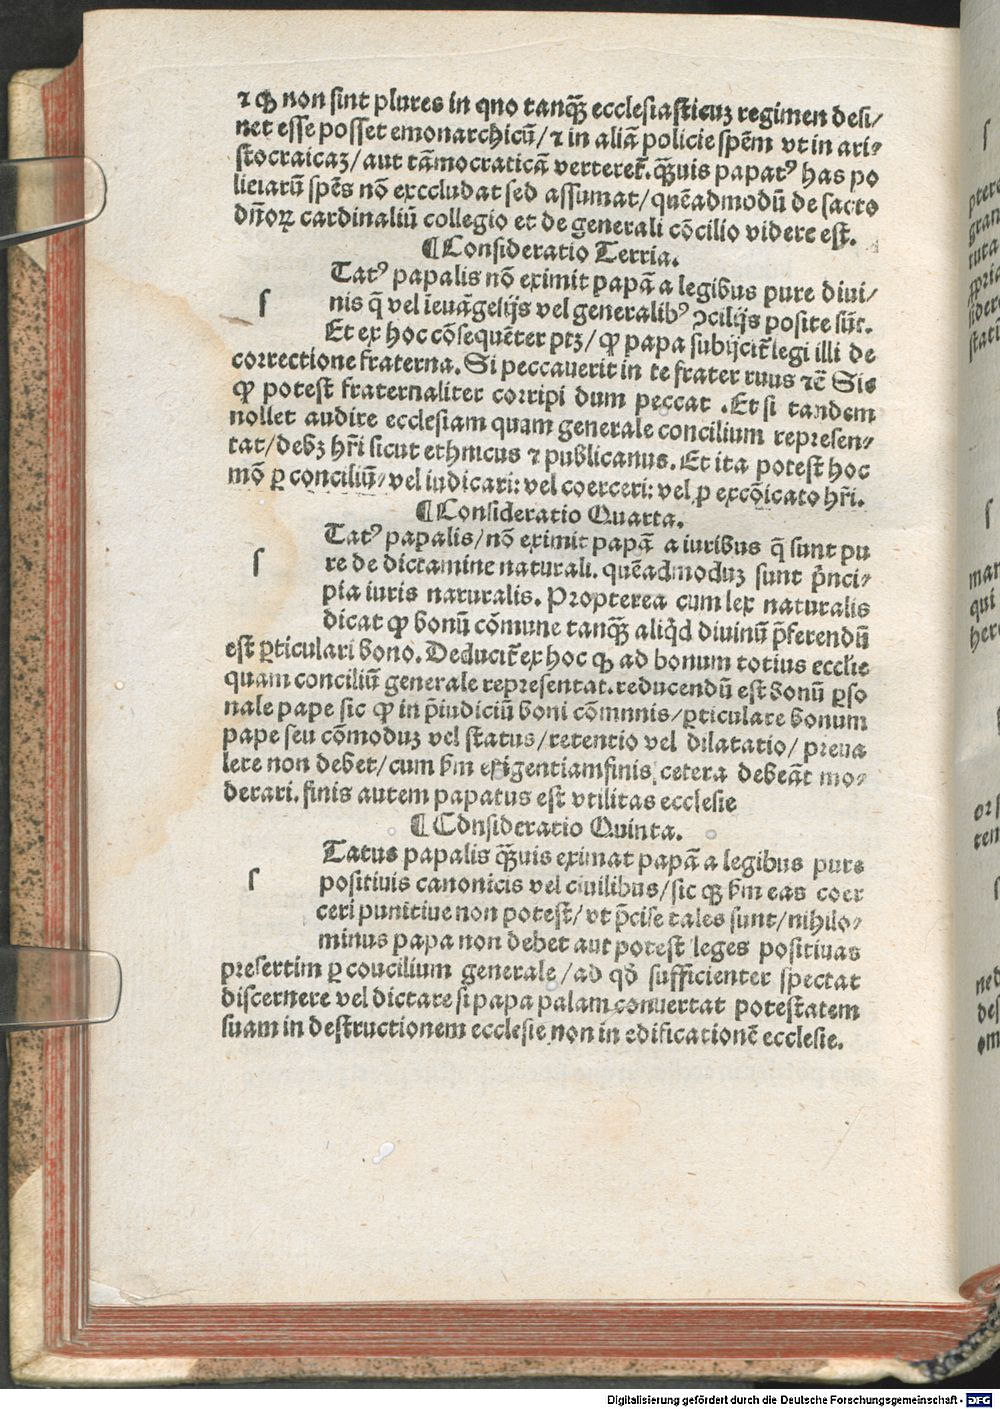 ⁊ ꝙ non sint plures in qno tanq̃ȝ ecclesiasticuȝ regimen desi/
net esse posset emonarchicũ/ ⁊ in aliã policie spẽm vt in ari⸗
stocraicaȝ/ aut tãmocraticã verteret̃. q̃ȝuis papatꝰ has po
liciarũ spẽs nõ exccludat sed assumat/ quẽadmodũ de sacro
dñoꝝ cardinaliũ collegio et de generali cõcilio videre est.
¶Consideratio Terria.
ſ
Tatꝰ papalis nõ eximit papã a legibus pure diui/
nis q̃ vel ĩeuãgelijs vel generalibꝰ ↄcilijs posite sũt.
Et ex hoc cõsequẽter ptȝ/ ꝙ papa subijcit̃ legi illi de
correctione fraterna. Si peccauerit in te frater ruus ⁊cẽ Sic
ꝙ potest fraternaliter corripi dum peccat . Et si tandem
nollet audire ecclesiam quam generale concilium represen⸗
tat/ debȝ hr̃i sicut ethnicus ⁊ publicanus. Et ita potest hoc
mõ ꝑ conciliũ/ vel iudicari: vel coerceri: vel ꝓ excõicato hr̃i.
¶Consideratio Quarta.
ſ
Tatꝰ papalis/ nõ eximit papã a iuribus q̃ sunt pu
re de dictamine naturali. quẽadmoduȝ sunt p̃nci⸗
pia iuris naturalis. Propterea cum lex naturalis
dicat ꝙ bonũ cõmune tanq̃ȝ aliq̃d diuinũ p̃ferendũ
est ꝑticulari bono. Deducit̃ ex hoc ꝙ ad bonum totius ecclie
quam conciliũ generale representat. reducendũ est bonũ ꝑso
nale pape sic ꝙ in p̃iudiciũ boni cõmnnis/ ꝑticulare bonum
pape seu cõmoduȝ vel status/ retentio vel dilatatio/ preua
lere non debet/ cum b̃m exigentiamfinis cetera debeãt mo⸗
derari. finis autem papatus est vtilitas ecclesie
¶Consideratio Quinta.
ſ
Tatus papalis q̃ȝuis eximat papã a legibus pure
positiuis canonicis vel ciuilibus/ sic ꝙ b̃m eas coer
ceri punitiue non potest/ vt p̃cise tales sunt/ nihilo⸗
minus papa non debet aut potest leges positiuas
presertim ꝑ coucilium generale / ad qõ sufficienter spectat
discernere vel dictare si papa palam conuertat potestatem
suam in destructionem ecclesie non in edificationẽ ecclesie.
Digitalisierung gefördert durch die Deutsche Forschungsgemeinschaft - DFG